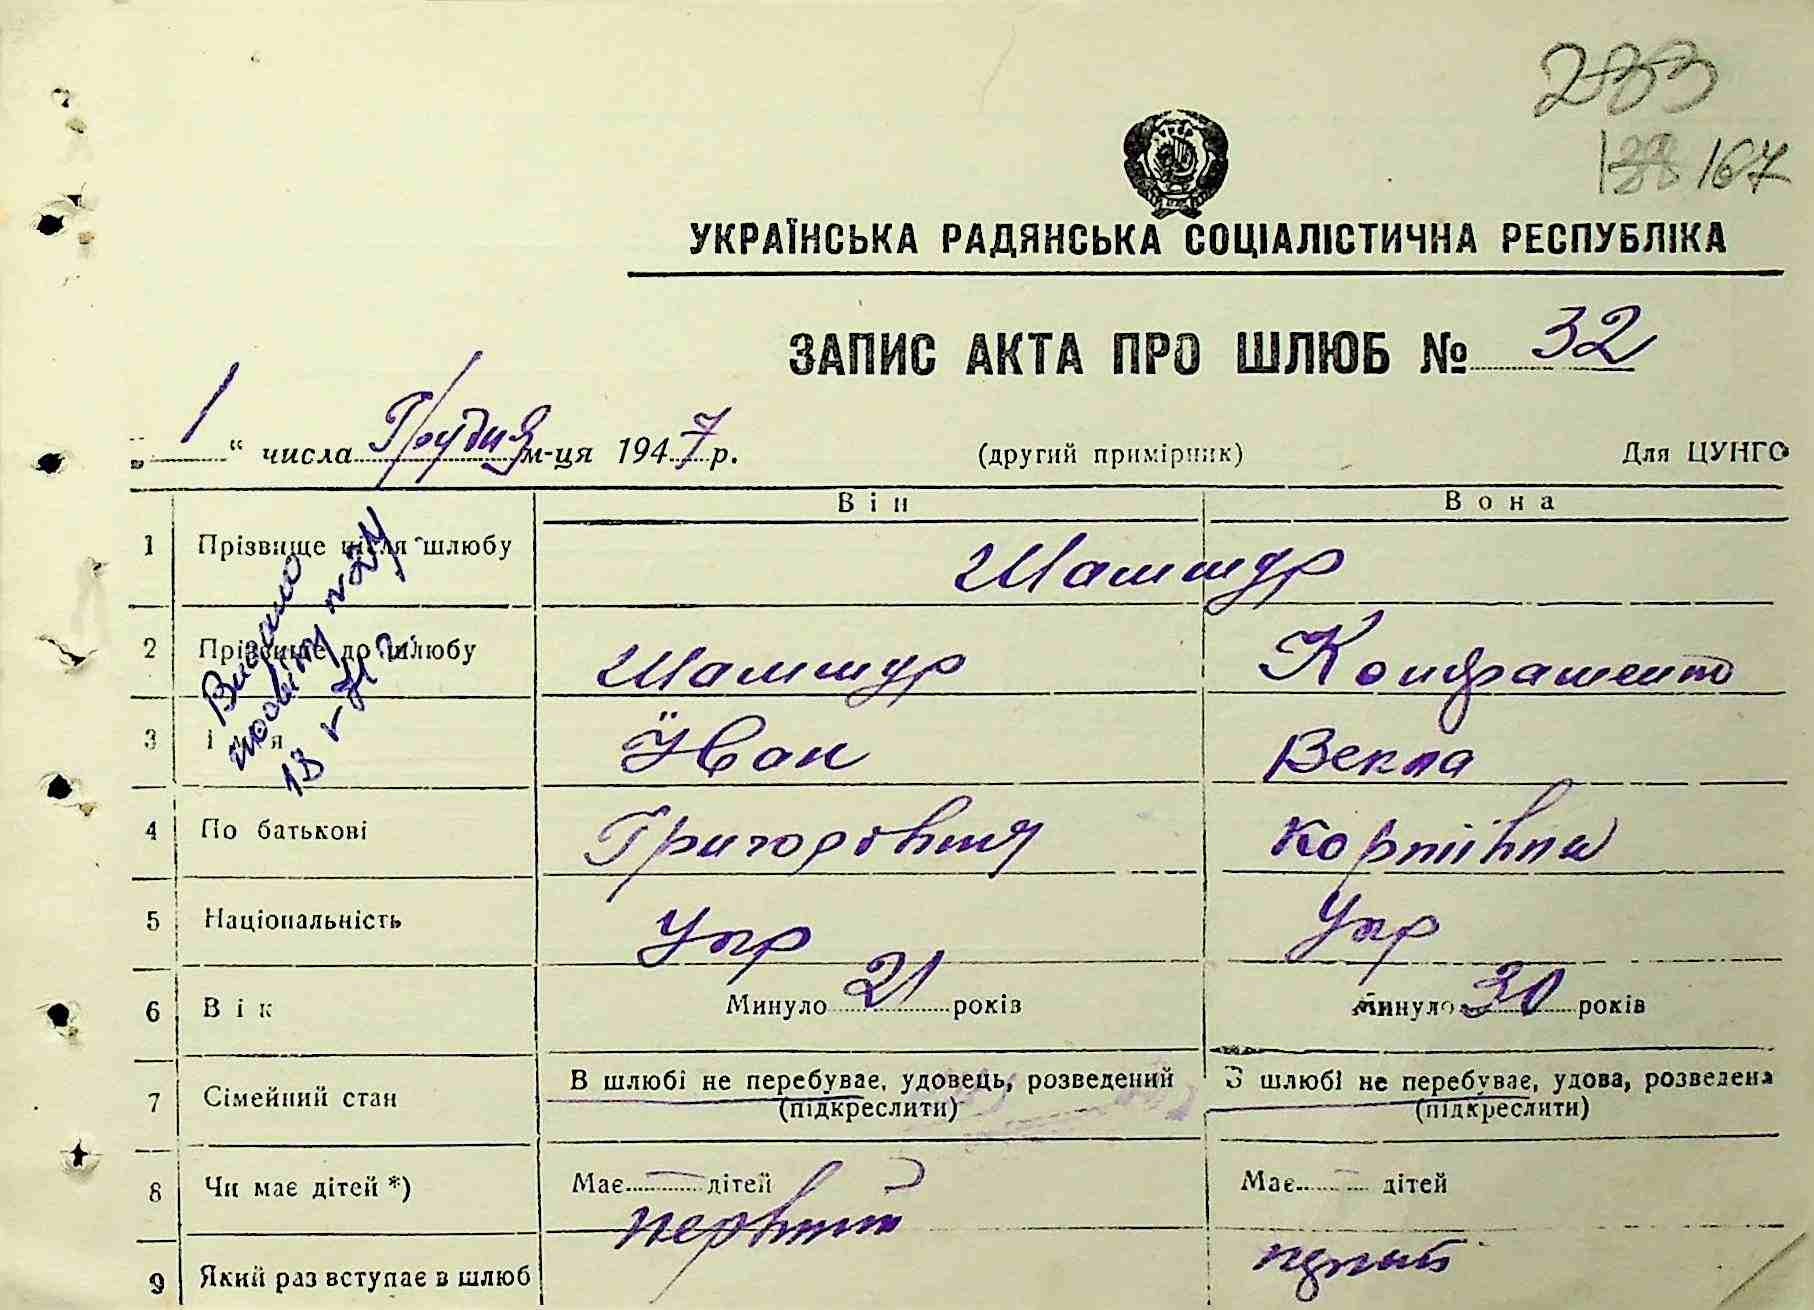 283
188 167
УКРАЇНСЬКА РАДЯНСЬКА СОЦІАЛІСТИЧНА РЕСПУБЛІКА
ЗАПИС АКТА ПРО ШЛЮБ № 32
„ 1 “ числа Грудня м-ця 1947 р. (другий примірник) Для ЦУНГО
Він Вона
1 Прізвище після шлюбу Шамшур
2 Прізвище до шлюбу Шамшур Кондрашенко
3 Ім'я Іван Векла
4 По батькові Григорович Корніївна
5 Національність Укр Укр
6 Вік Минуло 21 років Минуло 30 років
7 Сімейний стан В шлюбі не перебуває, удовець, розведений В шлюбі не перебуває, удова, розведена
(підкреслити) (підкреслити)
8 Чи має дітей *) Має — дітей Має — дітей
9 Який раз вступає в шлюб первий
Видано